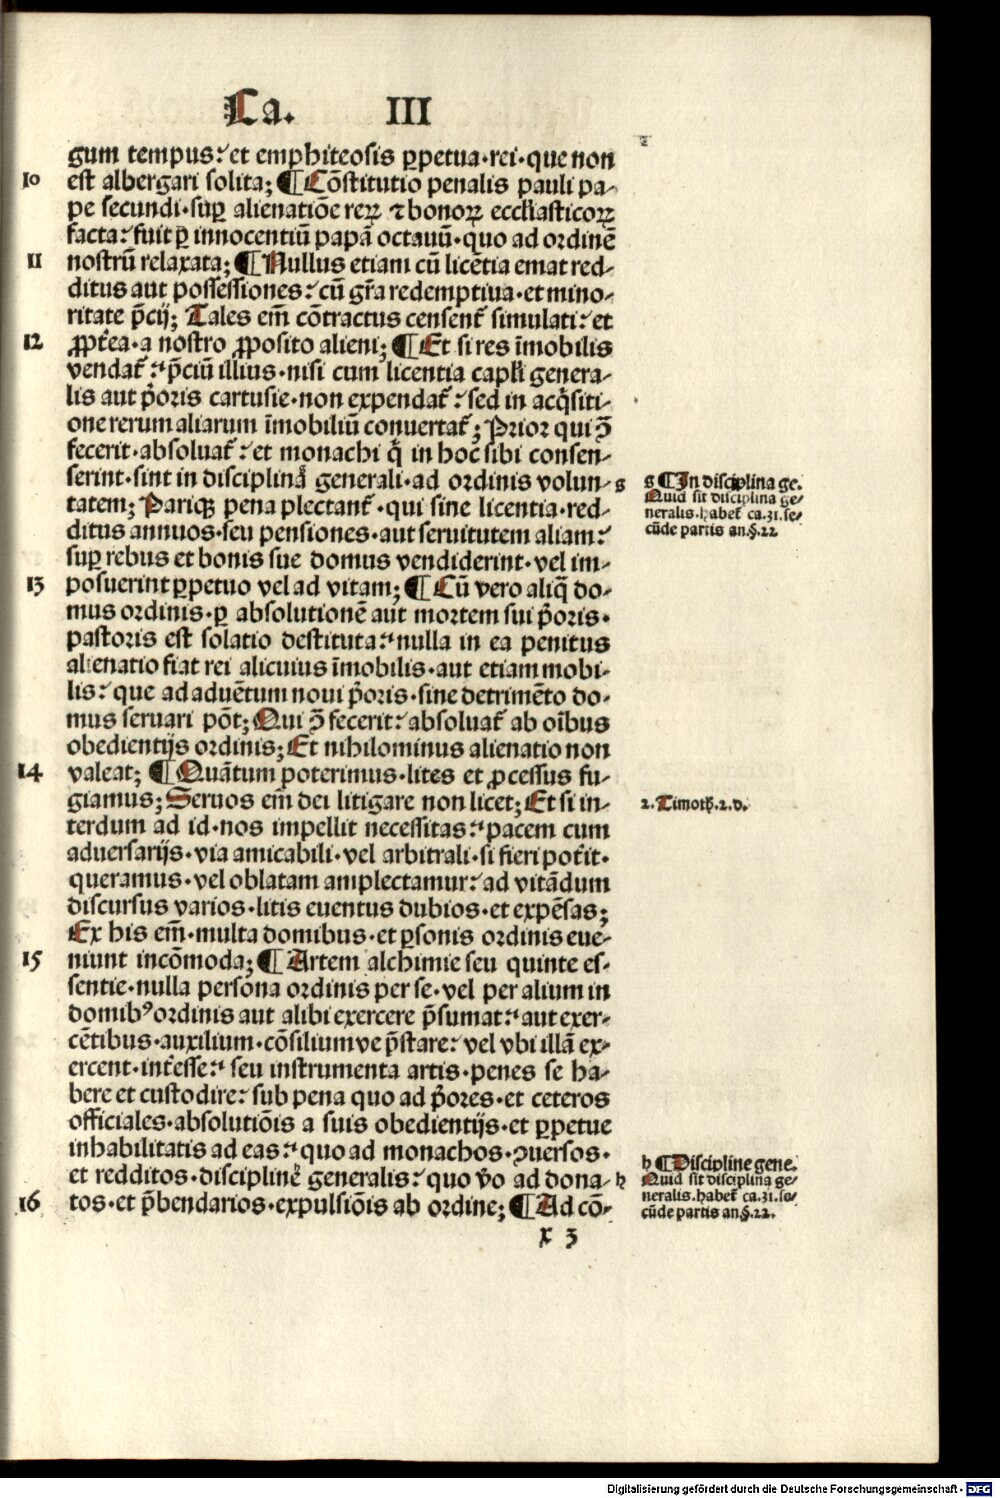 Ca. III
gum tempus: et emphiteosis ꝑpetua·rei·que non
10 est albergari solita; ¶ Cōstitutio penalis pauli pa-
pe secundi·suꝑ alienatiōe reꝝ ⁊ bonoꝝ eccl̄iasticoꝝ
facta: fuit ꝑ innocentiū papā octauū·quo ad ordinē
11 nostrū relaxata; ¶ Nullus etiam cū licētia emat red-
ditus aut possessiones: cū gr̄a redemptiua·et mino-
ritate p̄cij; Tales em̄ cōtractus censent̄ simulati: et
12 ꝓpt̄ea·a nostro ꝓposito alieni; ¶ Et si res īmobilis
vendat̄: p̄ciū illius·nisi cum licentia capl̄i genera-
lis aut p̄oris cartusie·non expendat̄: sed in acq̄siti-
one rerum aliarum īmobiliū conuertat̄; Prior qui ↄ̄
fecerit·absoluat̄: et monachi q̄ in hoc sibi consen-
serint·sint in disciplina generali·ad ordinis volun- g
tatem; Pariqꝫ pena plectant̄·qui sine licentia·red-
ditus annuos·seu pensiones·aut seruitutem aliam:
suꝑ rebus et bonis sue domus vendiderint·vel im-
13 posuerint ꝑpetuo vel ad vitam; ¶ Cū vero aliq̄ do-
mus ordinis·ꝑ absolutionē aut mortem sui p̄oris·
pastoris est solatio destituta: nulla in ea penitus
alienatio fiat rei alicuius īmobilis·aut etiam mobi-
lis: que ad aduētum noui p̄oris·sine detrimēto do-
mus seruari pōt; Qui ↄ̄ fecerit: absoluat̄ ab oībus
obedientijs ordinis; Et nihilominus alienatio non
14 valeat; ¶ Quātum poterimus·lites et ꝓcessus fu-
giamus; Seruos em̄ dei litigare non licet; Et si in-
terdum ad id·nos impellit necessitas: pacem cum
aduersarijs·via amicabili·vel arbitrali·si fieri pot̄it·
queramus·vel oblatam amplectamur: ad vitādum
discursus varios·litis euentus dubios·et expēsas;
Ex his em̄·multa domibus·et ꝑsonis ordinis eue-
15 niunt incōmoda; ¶ Artem alchimie seu quinte es-
sentie·nulla persona ordinis per se·vel per alium in
domibꝰ ordinis aut alibi exercere p̄sumat: aut exer-
cētibus·auxilium·cōsilium ve p̄stare: vel vbi illā ex-
ercent·int̄esse: seu instrumenta artis·penes se ha-
bere et custodire: sub pena quo ad p̄ores·et ceteros
officiales·absolutiōis a suis obedientijs·et ꝑpetue
inhabilitatis ad eas: quo ad monachos·ↄuersos·
et redditos·discipline generalis: quo v̄o ad dona- h
16 tos·et p̄bendarios·expulsiōis ab ordine; ¶ Ad cō-
x 3
g ¶ In disciplina ge.
Quid sit disciplina ge-
neralis.habet̄ ca.31.se-
cūde partis an.§.22
2. Timoth.2.d.
h ¶ Discipline gene.
Quid sit disciplina ge-
neralis.habet̄ ca.31.se-
cūde partis an.§.22.
Digitalisierung gefördert durch die Deutsche Forschungsgemeinschaft - DFG